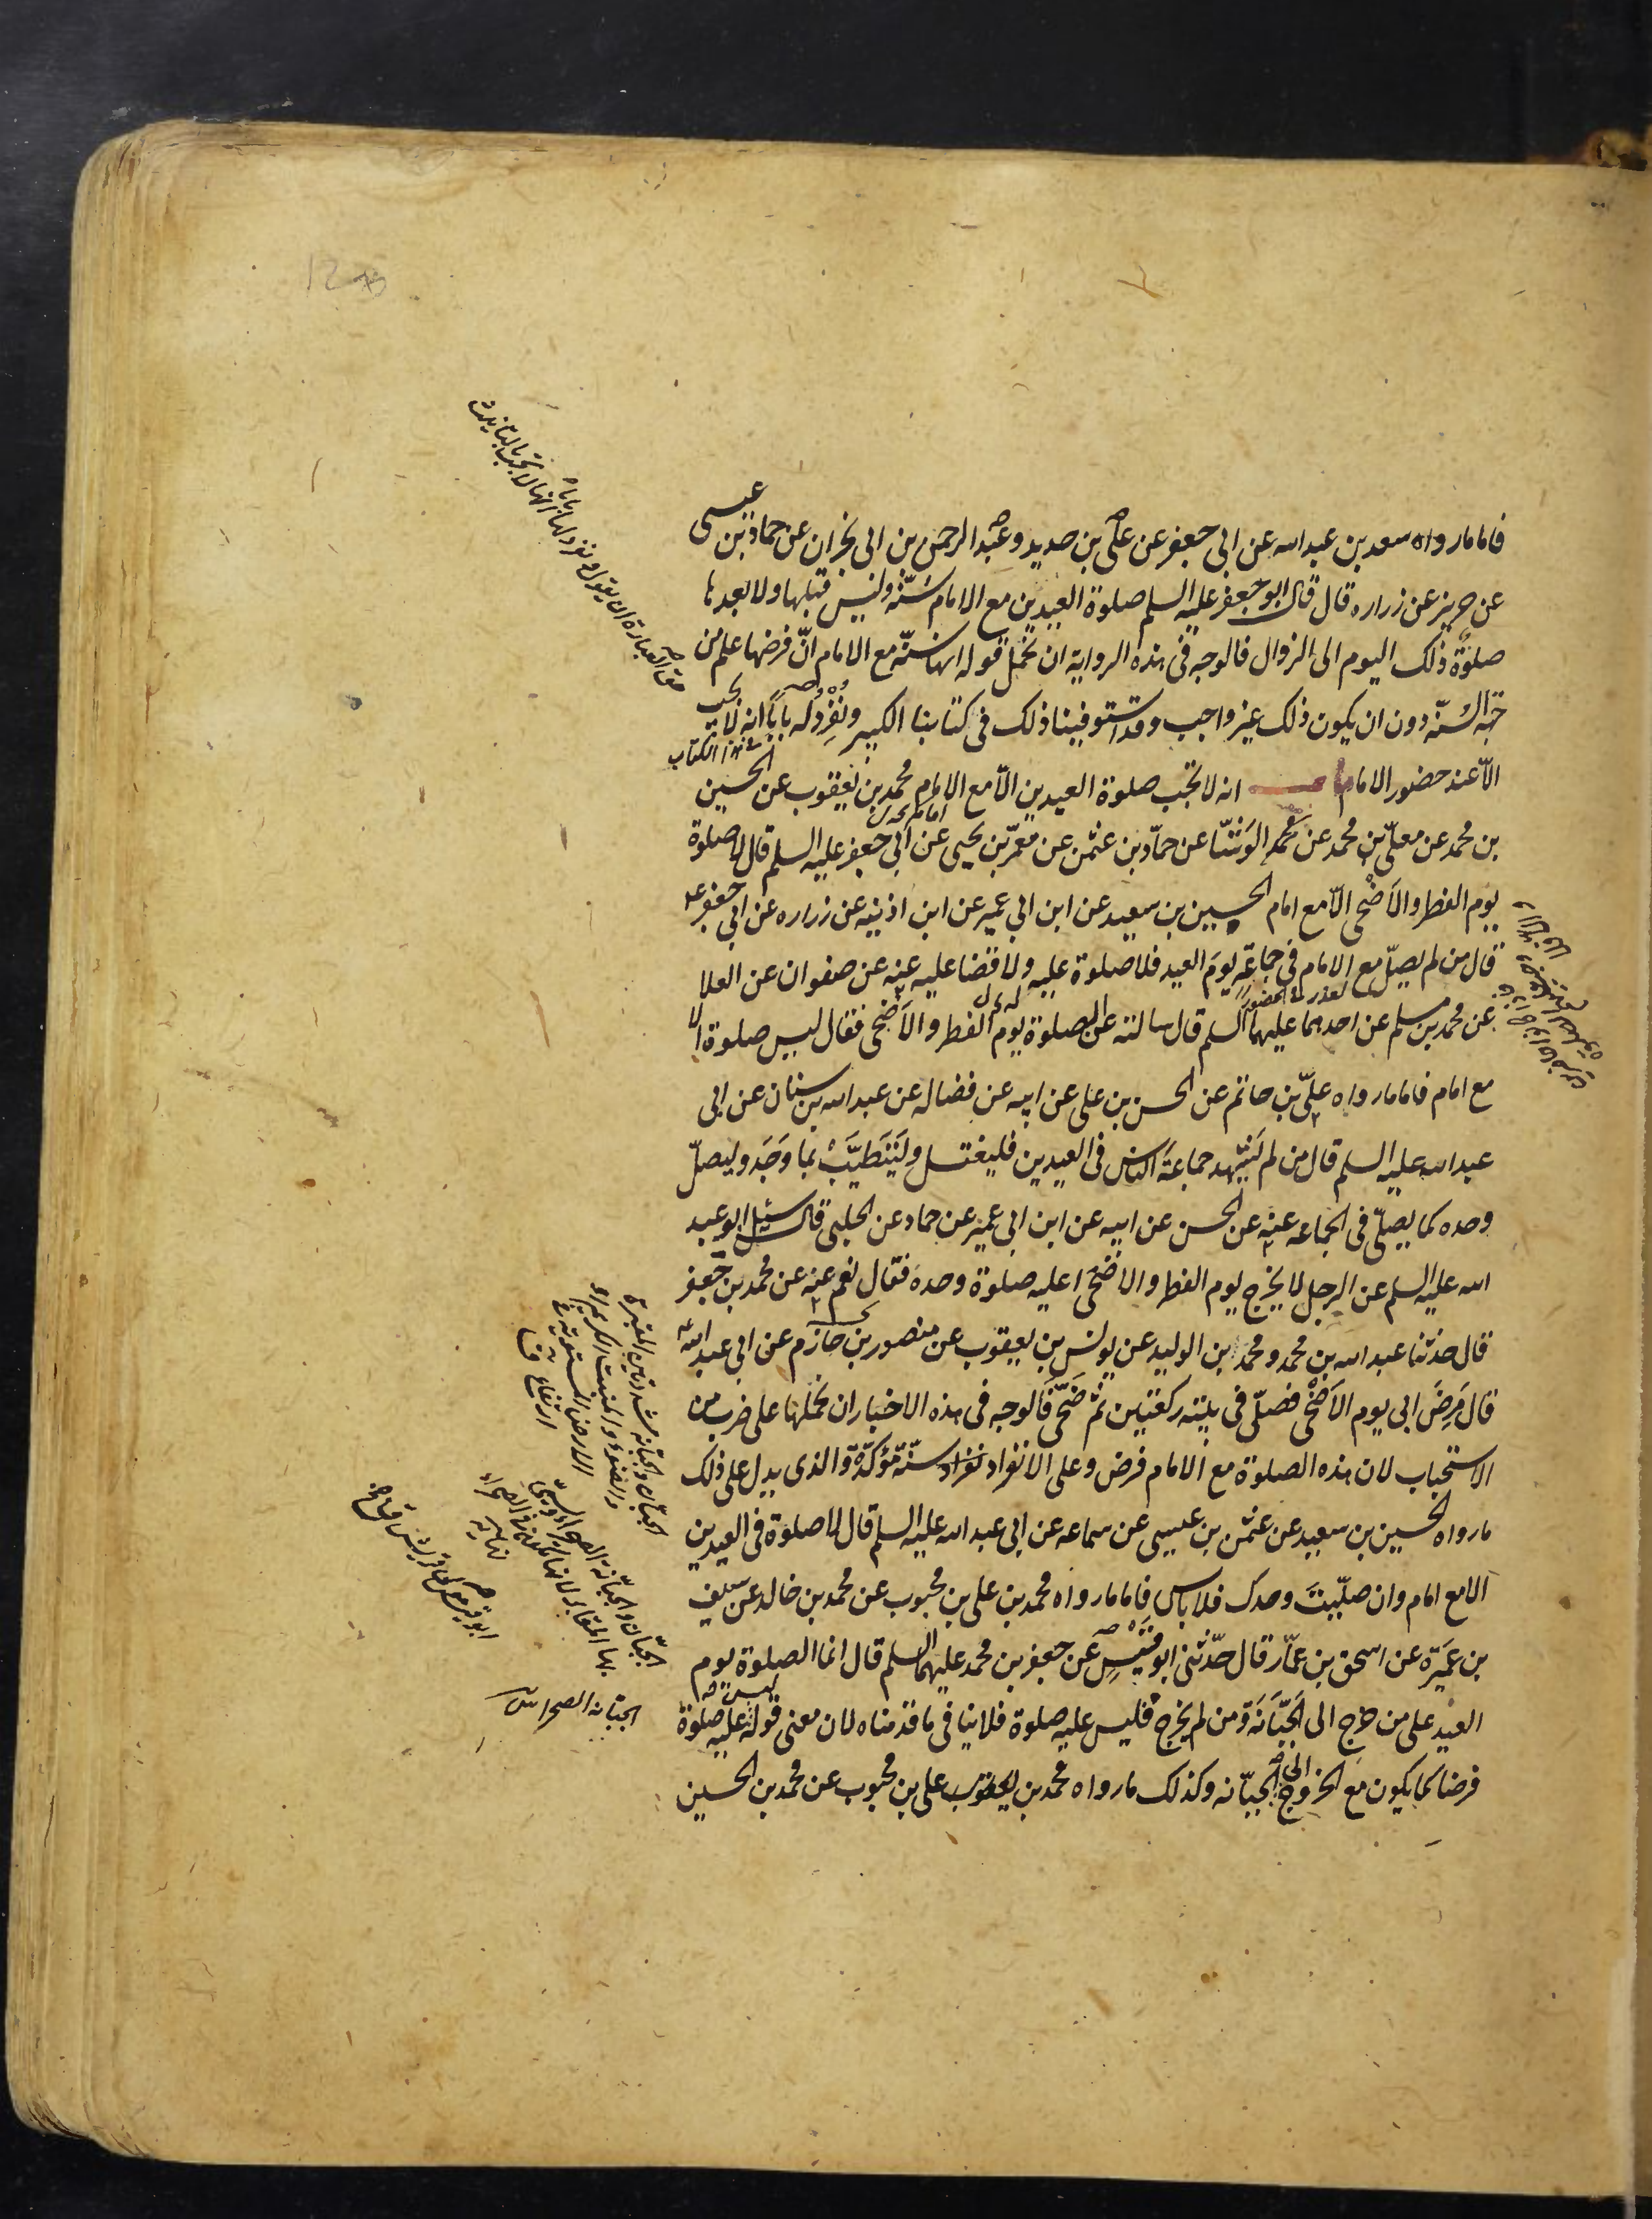 فاما ما رواه سعد بن عبد الله عن ابى جعفر عن على بن حديد و عبد الرحمن بن ابى نجران عن حماد بن عيسى
عن حريز عن زراره قال قال ابو جعفر عليه السلم صلوة العيدين مع الامام سنّة وليس قبلها ولا بعدها
صلوةٌ ذلك اليوم الى الزوال فالوجه فى هذه الرواية ان نحمل قوله انها سنّة مع الامام انّ فرضها علم من
جهة السّنّة دون ان يكون ذلك غير واجب وقد استوفينا ذلك فى كتابنا الكبير ونُفْرِدُ له بابًا انه لا تجب
فى هذا الكتاب
الّا عند حضور الامام باب انه لا تجب صلوة العيدين الّا مع الامام محمد بن يعقوب عن الحسين
بن محمد عن معلّى بن محمد عن الوَشّا عن حمّاد بن عثمن عن معمّر بن يحيى عن ابى جعفر عليه السلم قال لا صلوة
يوم الفطر والاَضْحى الّا مع امام الحسين بن سعيد عن ابن ابي عمير عن ابن اذينه عن زراره عن ابى جعفر عليه
قال من لم يصلّ مع الامام فى جماعةٍ يومَ العيد فلا صلوة عليه ولا قضا عليه عنه عن صفوان عن العلا
عن محمد بن مسلم عن احدهما عليهما السلم قال سالته عن الصلوة يوم الفطر والاَضْحى فقال ليس صلوة الا
مع امام فاما ما رواه علىّ بن حاتم عن الحسن بن على عن ابيه عن فضاله عن عبد الله بن سنان عن ابى
عبد الله عليه السلم قال من لم يَشْهد جماعةَ الناس فى العيدين فليغتسل وليَتَطَيَّبْ بما وَجَد وليصلّ
وحده كما يصلّى فى الجماعه عنه عن الحسن عن ابيه عن ابن ابى عمير عن حماد عن الحلبى قال سئل ابو عبد
الله عليه السلم عن الرجل لا يخرج يوم الفطر والاضحى اعليه صلوة وحده فقال نعم عنه عن محمد بن جعفر
قال حدثنا عبد الله بن محمد و محمد بن الوليد عن يونس بن يعقوب عن منصور بن حازم عن ابى عبد الله
قال مَرِضَ ابى يوم الاَضْحى فصلّى فى بيته ركعتين ثم ضَحّى فالوجه فى هذه الاخبار ان نحملها على ضرب من
الاستحباب لان هذه الصلوة مع الامام فرض وعلى الانفراد سنّة مؤكدة والذى يدل على ذلك
ما رواه الحسين بن سعيد عن عثمن بن عيسى عن سماعه عن ابى عبد الله عليه السلم قال لا صلوة فى العيدين
الا مع امام وان صلّيتَ وحدك فلا باس فاما ما رواه محمد بن على بن محبوب عن محمد بن خالد عن سيف
بن عَمِيْرَة عن اسحق بن عمّار قال حدّثنى ابو قيس عن جعفر بن محمد عليهما السلم قال انما الصلوة يوم
العيد على من خرج الى الجَبّانَة ومن لم يخرج فليس عليه صلوة فلا ينافى ما قدمناه لان معنى قوله ليس عليه صلوة
فرضا كما يكون مع الخروج الى الجبّانه وكذلك ما رواه محمد بن على بن محبوب عن محمد بن الحسين
حق العبارة ان يقول ونفرد لها بابا انها لا تجب بالتانيث
الجبّان والجبّانة مشدّدتين المقبرة
والصحراء والمنبت الكريم او
الارض المستوية فى
ارتفاع ق
الجبّان والجبّانة الصحراء وتسمى
بها المقابر لانها تكون فى الصحراء
نهاية
الجبّانه الصحرا س